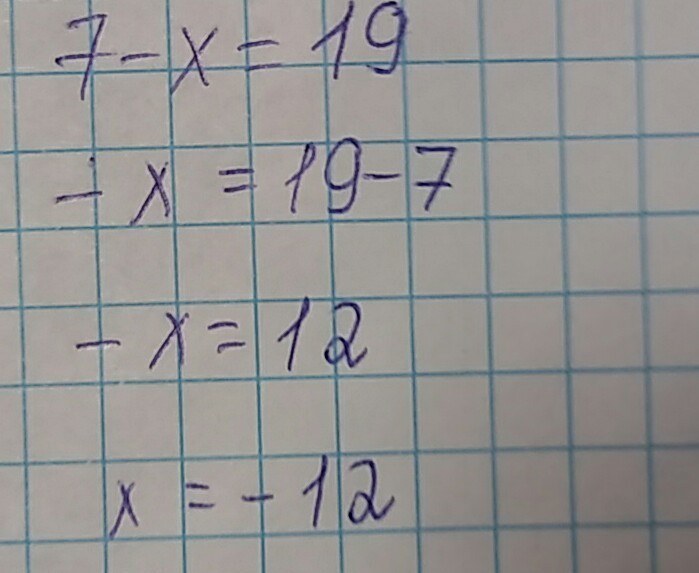 7 - x = 19
- x = 19 - 7
- x = 12
x = - 12